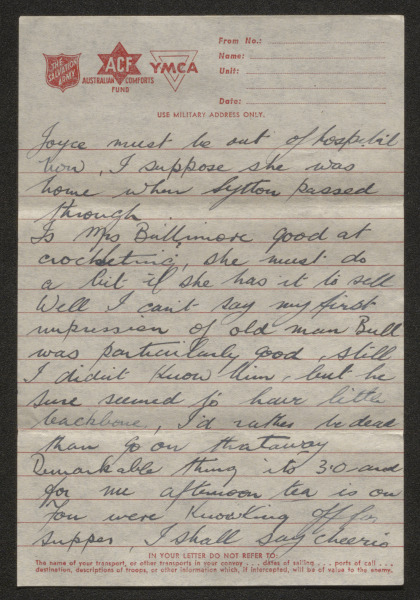 THE SALVATION ARMY
ACF
AUSTRALIAN COMFORTS FUND
YMCA
From No.:
Name:
Unit:
Date:
USE MILITARY ADDRESS ONLY.
Joyce must be out of hospital
now, I suppose she was
home when Lytton passed
through.
Is Mrs Bultimore good at
crocheting, she must do
a bit if she has it to sell
Well I can't say my first
impression of old man Bull
was particularly good, still
I didn't know him, but he
sure seemed to have little
backbone, I'd rather be dead
than go on thataway
Remarkable thing its 3.0 and
for me afternoon tea is on
You were knocking off for
supper, I shall say cheerio
IN YOUR LETTER DO NOT REFER TO:
The name of your transport, or other transports in your convoy . . . dates of sailing . . . ports of call . . .
destination, descriptions of troops, or other information which, if intercepted, will be of value to the enemy.